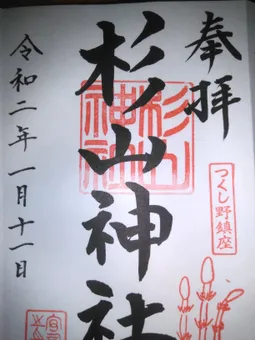 奉拝
つくし野鎮座
杉山神社
杉山
神社
令和二年一月十一日